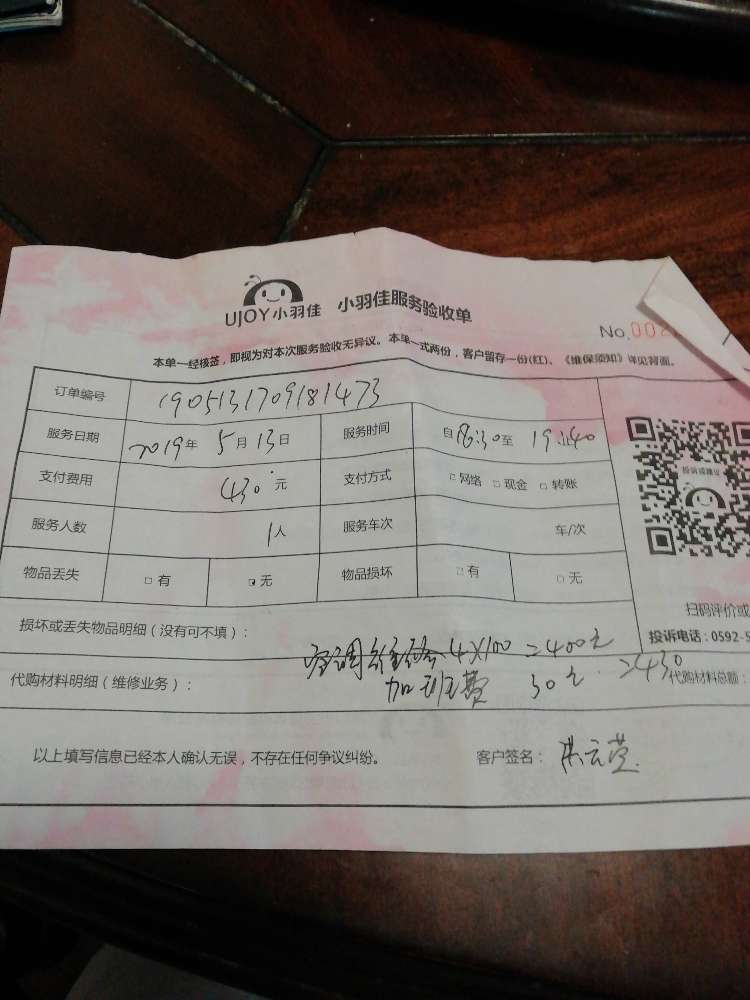 UJOY小羽佳 小羽佳服务验收单
No.00
本单一经核签，即视为对本次服务验收无异议。本单一式两份，客户留存一份(红)、《维保须知》详见背面。
订单编号 1905131709181473
服务日期 2019年5月13日 服务时间 自18:30至19:40
支付费用 430元 支付方式 □网络 □现金 □转账
服务人数 1人 服务车次 车/次
物品丢失 □有 □无 物品损坏 □有 □无
投诉或建议
扫码评价或
损坏或丢失物品明细（没有可不填）：
投诉电话：0592-5
空调 4×100=400元
代购材料明细（维修业务）： 加班费 30元 =430
代购材料总额：
以上填写信息已经本人确认无误，不存在任何争议纠纷。 客户签名： 洪云萱